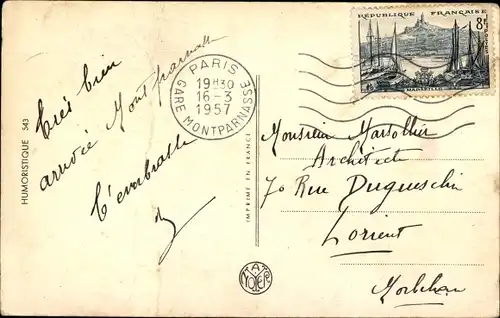 HUMORISTIQUE 543
Très bien
arrivée Montparnasse
t'embrasse
IMPRIMÉ EN FRANCE
PARIS
19H30
16-3
1957
GARE MONTPARNASSE
RÉPUBLIQUE FRANÇAISE
8F
POSTES
MARSEILLE
Monsieur Marsollier
Architecte
70 Rue Duguesclin
Lorient
Morbihan